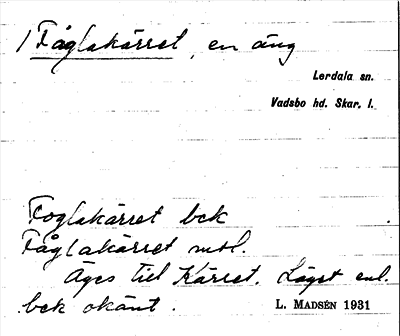 /Fåglakärret, en äng
Lerdala sn.
Vadsbo hd. Skar. l.
Foglakärret bck
Fåglakärret mtl.
Äges till Kärret. Läget enl.
bck okänt.
L. MADSÉN 1931